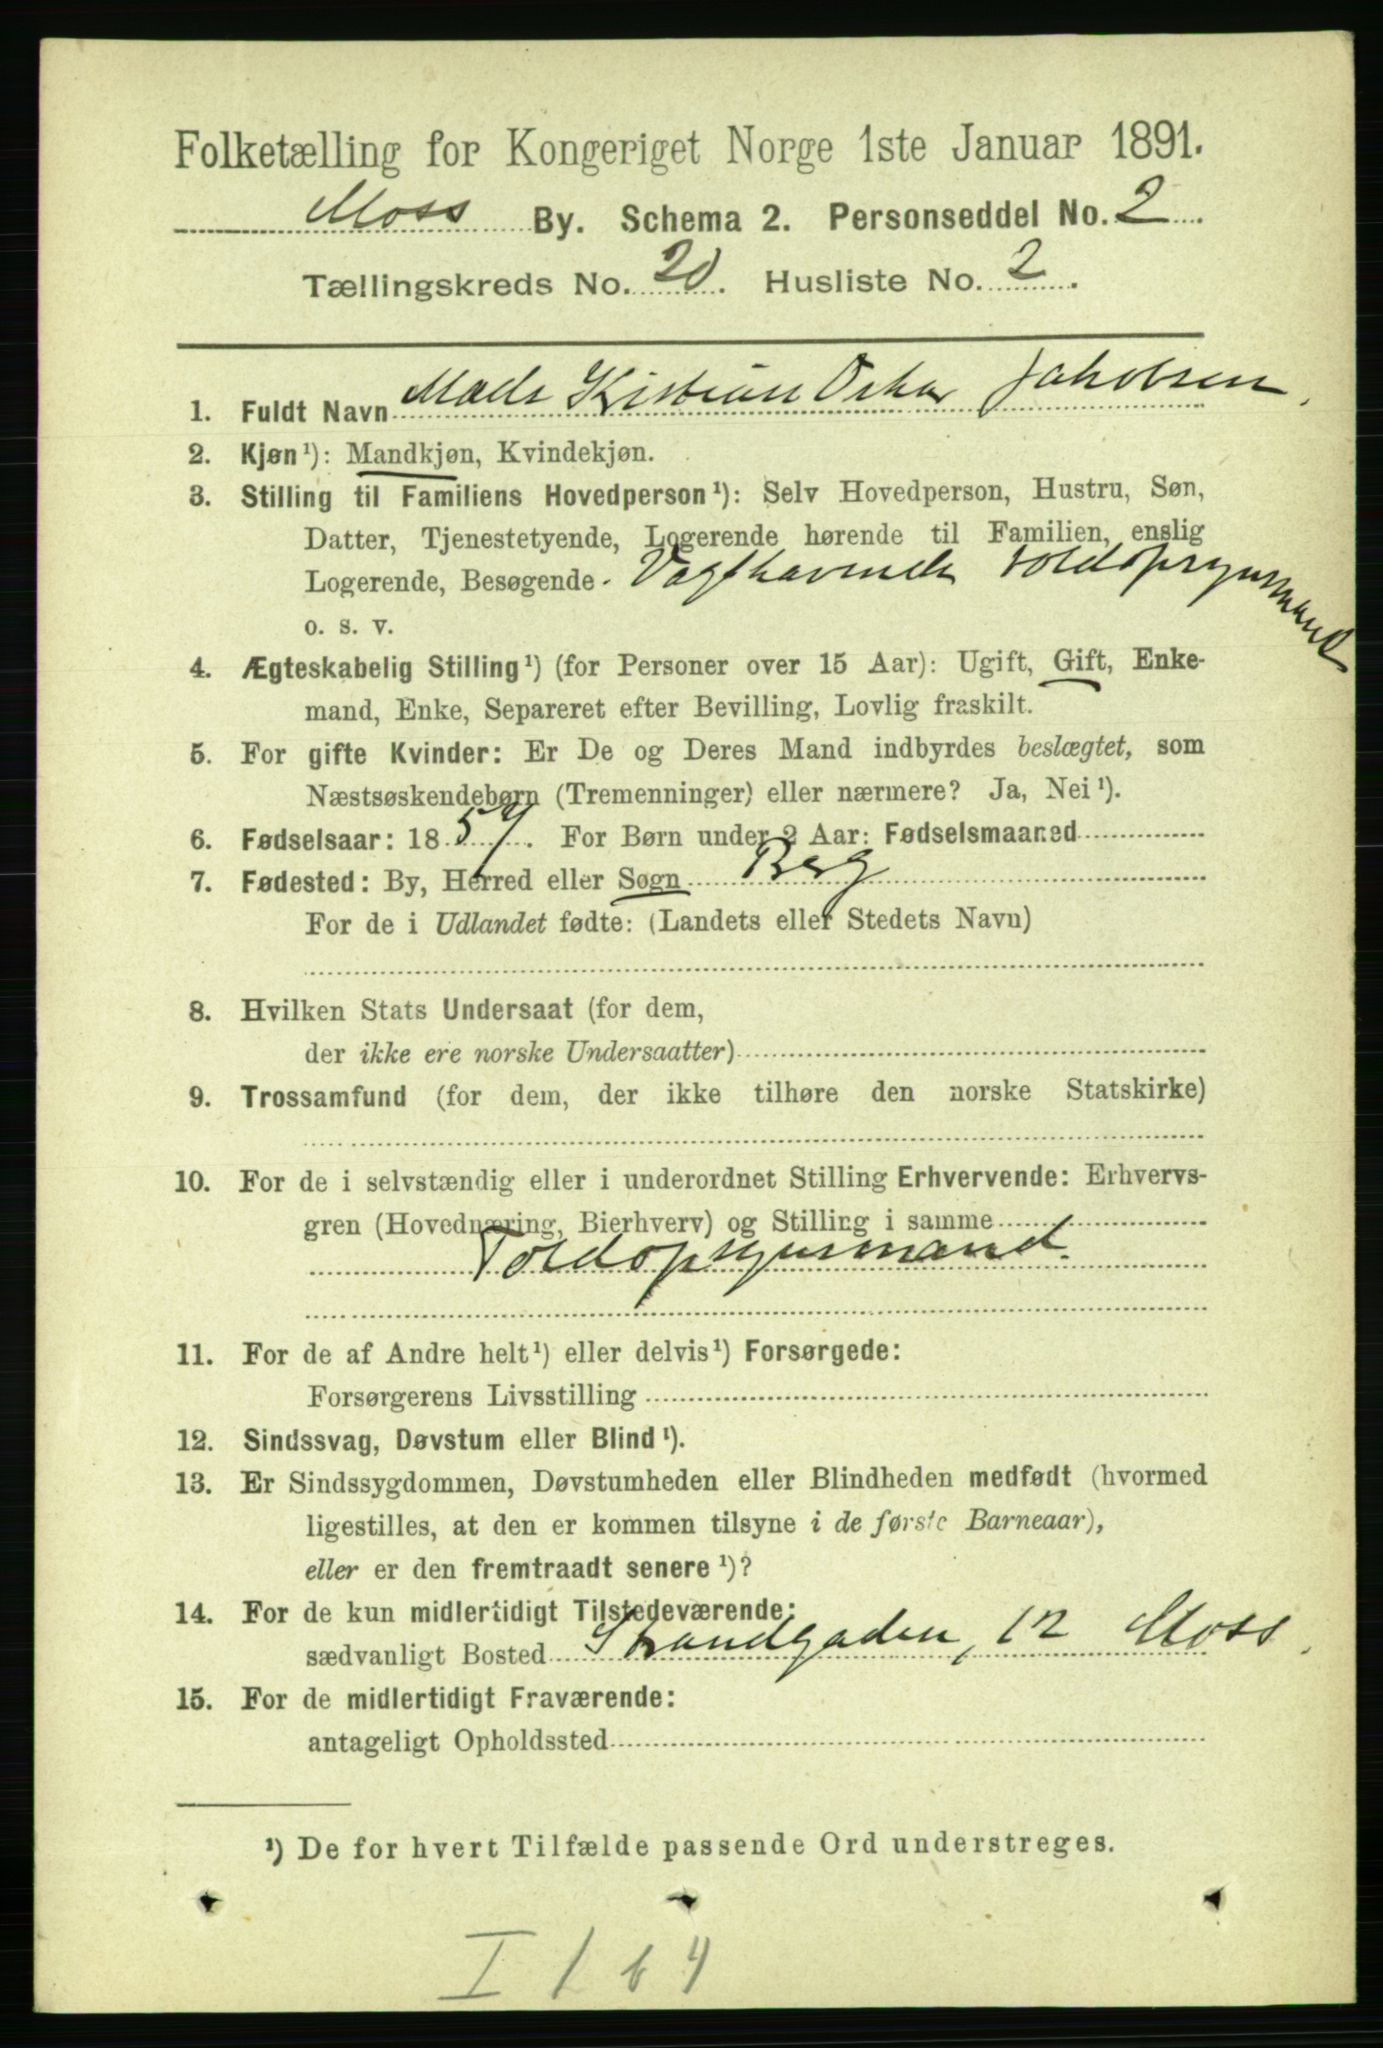 Folketælling for Kongeriget Norge 1ste Januar 1891.
Moss By. Schema 2. Personseddel No. 2
Tællingskreds No. 20. Husliste No. 2.
1. Fuldt Navn Mads Kristian Oskar Jakobsen.
2. Kjøn¹): Mandkjøn, Kvindekjøn.
3. Stilling til Familiens Hovedperson¹): Selv Hovedperson, Hustru, Søn,
Datter, Tjenestetyende, Logerende hørende til Familien, enslig
Logerende, Besøgende. Vagthavende Toldopsynsmand
o. s. v.
4. Ægteskabelig Stilling¹) (for Personer over 15 Aar): Ugift, Gift, Enke-
mand, Enke, Separeret efter Bevilling, Lovlig fraskilt.
5. For gifte Kvinder: Er De og Deres Mand indbyrdes beslægtet, som
Næstsøskendebørn (Tremenninger) eller nærmere? Ja, Nei¹).
6. Fødselsaar: 1857. For Børn under 2 Aar: Fødselsmaaned
7. Fødested: By, Herred eller Sogn Berg
For de i Udlandet fødte: (Landets eller Stedets Navn)
8. Hvilken Stats Undersaat (for dem,
der ikke ere norske Undersaatter)
9. Trossamfund (for dem, der ikke tilhøre den norske Statskirke)
10. For de i selvstændig eller i underordnet Stilling Erhvervende: Erhvervs-
gren (Hovednæring, Bierhverv) og Stilling i samme
Toldopsynsmand.
11. For de af Andre helt¹) eller delvis¹) Forsørgede:
Forsørgerens Livsstilling
12. Sindssvag, Døvstum eller Blind¹).
13. Er Sindssygdommen, Døvstumheden eller Blindheden medfødt (hvormed
ligestilles, at den er kommen tilsyne i de første Barneaar),
eller er den fremtraadt senere¹)?
14. For de kun midlertidigt Tilstedeværende:
sædvanligt Bosted Strandgaden, 12 Moss.
15. For de midlertidigt Fraværende:
antageligt Opholdssted
¹) De for hvert Tilfælde passende Ord understreges.
I 1 64